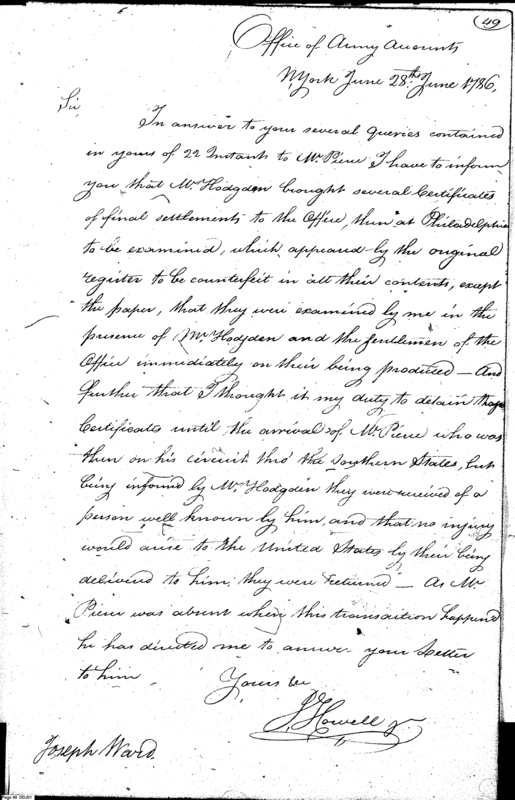 49
Office of Army Accounts
NYork June 28th June 1786,
Sir,
In answer to your several Queries contained
in yours of 22 Instants to Mr Pierce I have to inform
you that Mr Hodgden brought several Certificates
of final settlements to the Office, then at Philadelphia
to be examined, which appeared by the original
register to be counterfeit in all their contents, except
the paper, that they were examined by me in the
presence of Mr Hodgden and the Gentlemen of the
Office immediately on their being produced — And
further that I thought it my duty to detain those
Certificates until the arrival of Mr Pierce who was
then on his circuit thro' the Southern States, but
being informed by Mr Hodgden they were received of a
person well known by him, and that no injury
would arise to the United States by their being
delivered to him, they were returned — As Mr
Pierce was absent when this transaction happened
he has directed me to answer your Letter
to him
Yours &c
Js Howell Jr.
Joseph Ward.